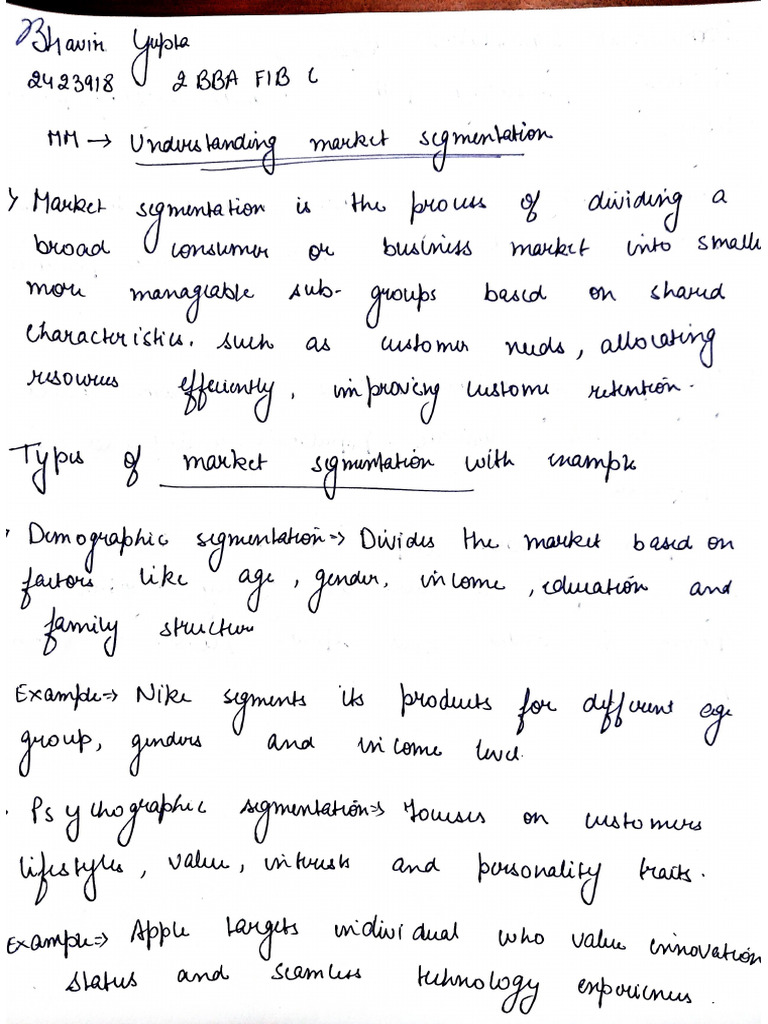 Bhavin Gupta
2423918 2 BBA FIB C
MM → Understanding market segmentation
> Market segmentation is the process of dividing a
broad consumer or business market into smaller
more managiable sub-groups based on shared
characteristics. such as customer needs, allocating
resources efficiently, improving custome retention.
Types of market segmentation with example
Demographic segmentation → Divides the market based on
factors like age, gender, income, education and
family structure
Example → Nike segments its products for different age
group, genders and income level.
Psychographic segmentation → Focuses on customers
lifestyles, value, interests and personality traits.
Example → Apple targets individual who value innovation
status and seamless technology experiences.